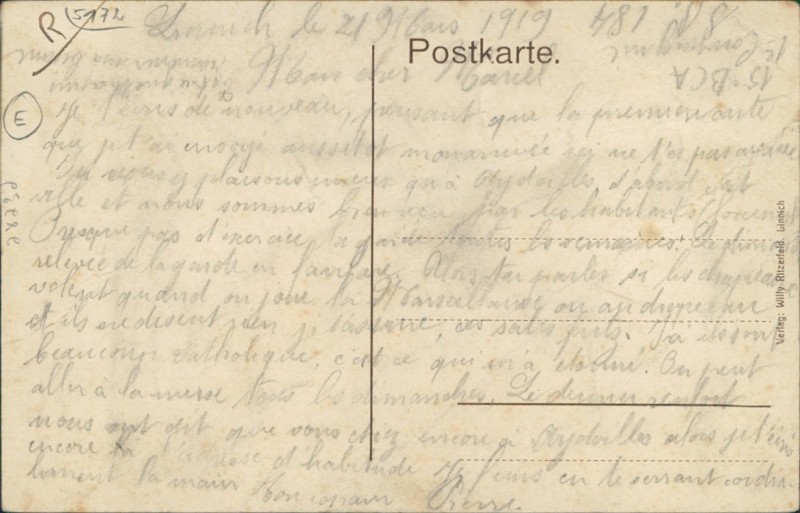 R 5172
Linnich le 21 Mars 1919
181
Postkarte.
15e BCA
Mon cher Marcel
E
Je t'écris de nouveau, pensant que la première carte
que je t'ai envoyé aussitot mon arrivée ici ne t'es pas arrivée
plaisons mieux qu'à Aydoilles, d'abord c'est
ville et nous sommes bien reçu par les habitants
Presque pas d'exercice, la garde toutes les semaines. Le dimanche
relevée de la garde en fanfare. Alors tu parles si les chapeaux
volent quand on joue la Marseillaise ou au drapeau
et ils ne disent rien je t'assure, ces sales
beaucoup catholique, c'est ce qui m'a étonné. On peut
aller à la messe tous les dimanches. Le dernier renfort
nous ont dit que vous étiez encore à Aydoilles alors je t'écris
encore à l'adresse d'habitude. Je finis en te serrant cordia-
lement la main Ton copain Pierre.
PIERRE
Verlag: Willy Ritzerfeld, Linnich